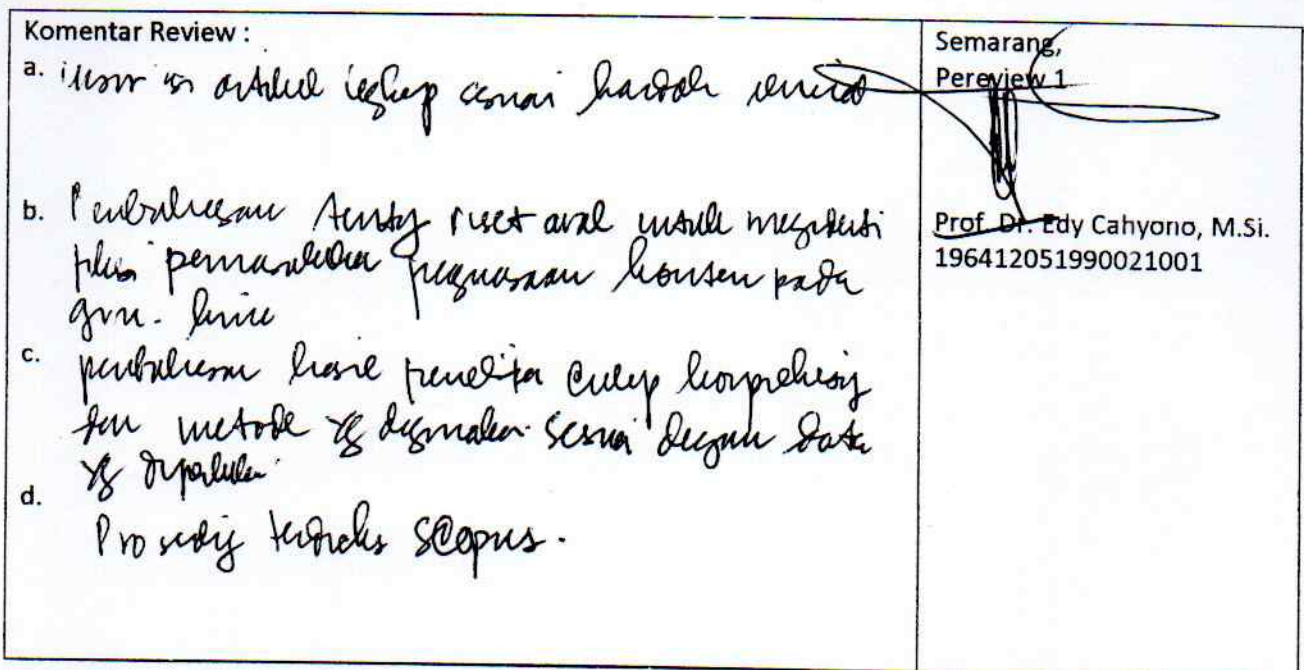 Komentar Review :
a. unsur isi artikel lengkap sesuai kaidah
b. Pembahasan tentang riset awal untuk
permasalahan penguasaan konsen pada
guru. kimia
c. pembahasan hasil penelitia cukup komprehensif
dan metode yg digunakan sesuai dengan data
yg diperlukan
d.
Prosiding terindeks SCopus.
Semarang,
Pereview 1
Prof. Dr. Edy Cahyono, M.Si.
196412051990021001